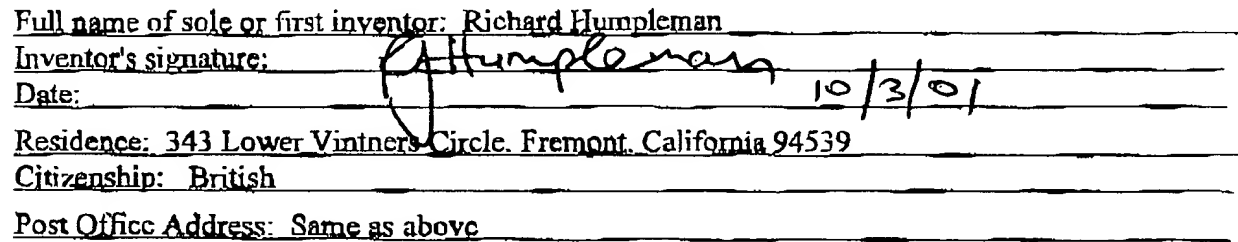 Full name of sole or first inventor: Richard Humpleman
Inventor's signature: RHumpleman
Date: 10/3/01
Residence: 343 Lower Vintners Circle. Fremont. California 94539
Citizenship: British
Post Office Address: Same as above